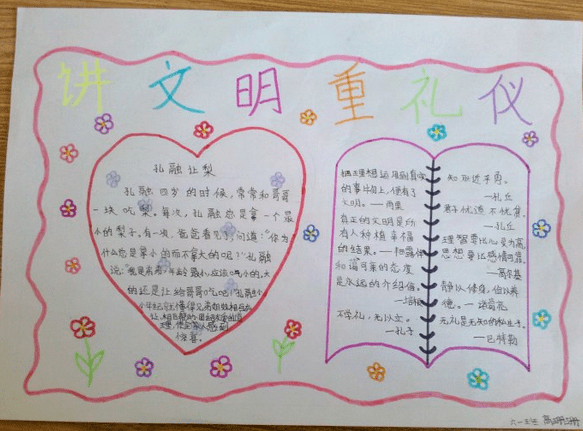 讲文明重礼仪
孔融让梨
孔融四岁的时候，常常和哥哥
一块吃梨。每次，孔融总是拿一个最
小的梨子。有一次，爸爸看见了，问道："你为
什么总是拿小的而不拿大的呢？"孔融
说："我是弟弟，年龄最小，应该吃小的，大
的还是让给哥哥吃吧！"孔融小
小年纪
惊喜。
把
的事业上，便有了
文明。——雨果
真正的文明是所
有人种植幸福
的结果。
和谐可亲的态度
是永远的介绍信。
——培根
不学礼，无以立。
——孔子
知耻近乎勇。
——孔丘
君子忧道不忧贫。
——孔丘
理智要比心灵为高，
思想要比感情可靠。
——高尔基
静以修身，俭以养
德。——诸葛亮
无礼是无知的私生子。
——巴特勒